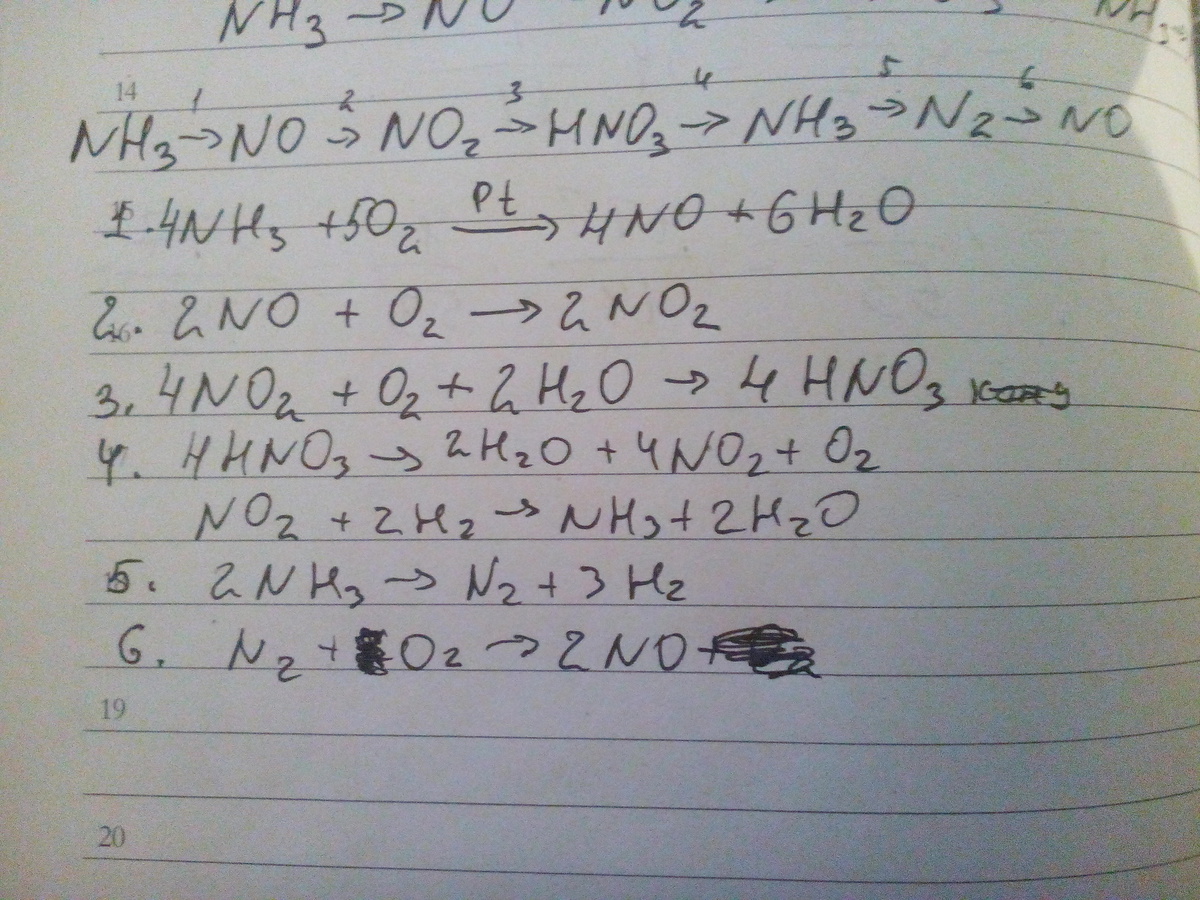 NH3 → NO NO2 NH3
14
1 2 3 4 5 6
NH3 → NO → NO2 → HNO3 → NH3 → N2 → NO
Pt
1. 4NH3 + 5O2 → 4NO + 6H2O
2. 2NO + O2 → 2NO2
3. 4NO2 + O2 + 2H2O → 4HNO3
4. 4HNO3 → 2H2O + 4NO2 + O2
NO2 + 2H2 → NH3 + 2H2O
5. 2NH3 → N2 + 3H2
6. N2 + O2 → 2NO +
19
20